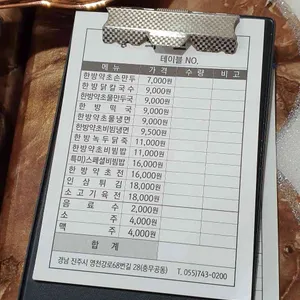 테이블 NO.
메뉴 가격 수량 비고
한방약초손만두 7,000원
한방닭칼국수 9,000원
한방약초물만두국 9,000원
한방떡국 9,000원
한방약초물냉면 9,000원
한방약초비빔냉면 9,500원
한방녹두닭죽 11,000원
한방약초비빔밥 11,000원
특미)스페셜비빔밥 16,000원
한방약초전 16,000원
인삼튀김 18,000원
소고기육전 18,000원
음료수 2,000원
소주 4,000원
맥주 4,000원
합계
경남 진주시 영천강로68번길 28(충무공동) T. 055)743-0200